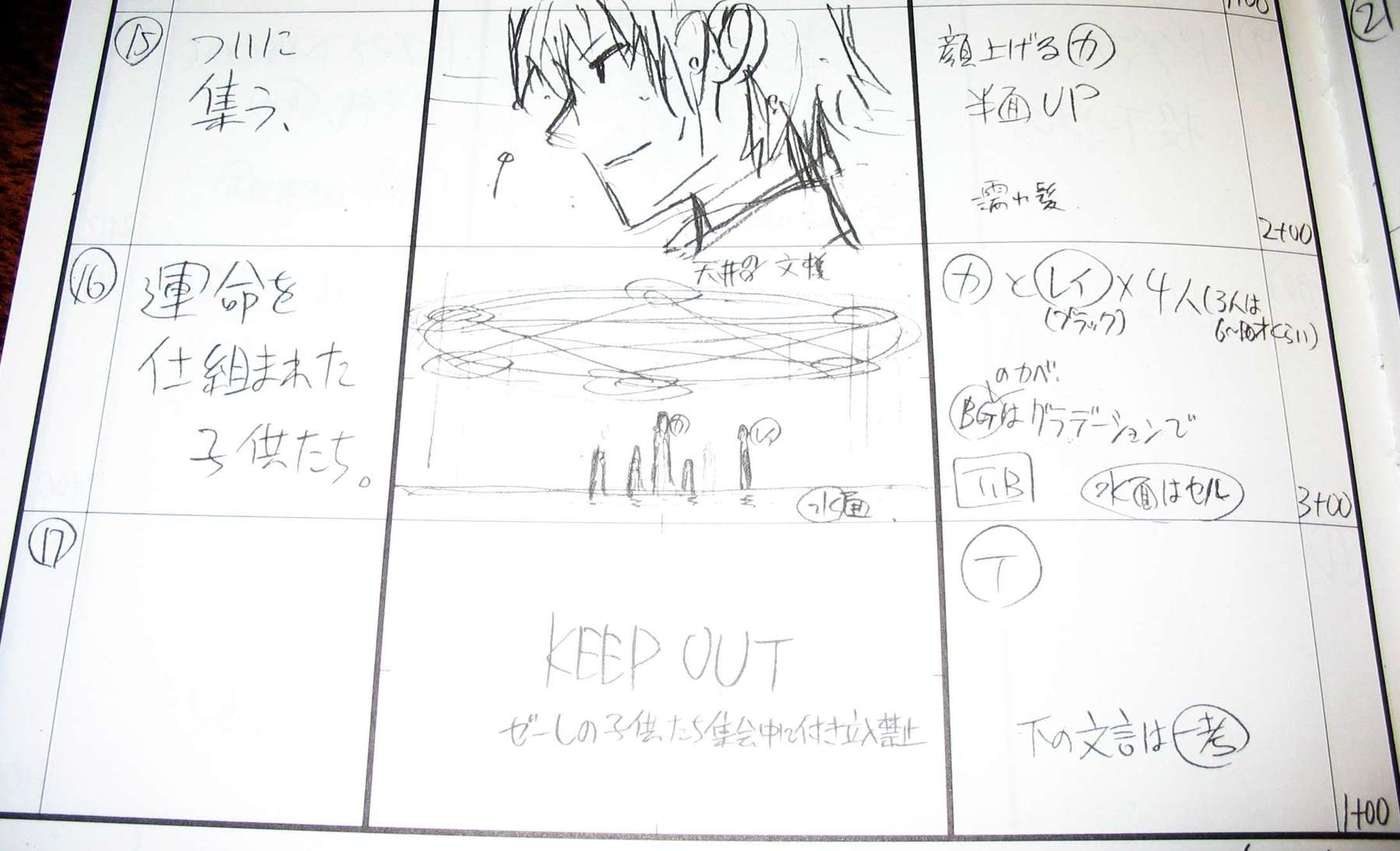 1+00
⑮
ついに
集う、
顔上げる㋕
半面UP
濡れ髪
2+00
⑯
運命を
仕組まれた
子供たち。
天井の文様
カ
レイ
水面
㋕とレイ×4人(3人は
(ブラック)
6〜10才くらい)
のカベ
BGはグラデーションで
T.B
水面はセル
3+00
⑰
KEEP OUT
ゼーレの子供たち集会中に付き立入禁止
T
下の文言は一考
1+00